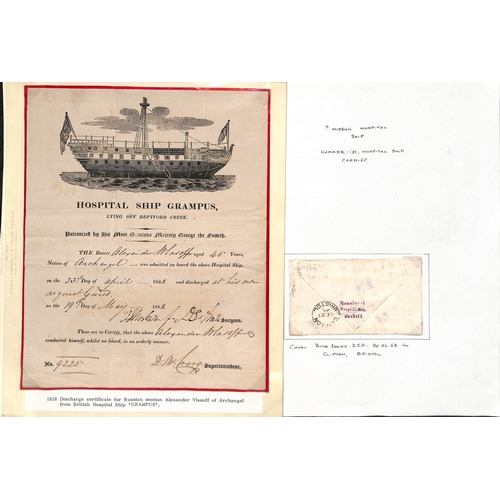 HOSPITAL SHIP GRAMPUS,
LYING OFF DEPTFORD CREEK.
Patronized by His Most Gracious Majesty George the Fourth.
THE Bearer Alexander Vlassoff aged 45 Years,
Native of Archangel was admitted on board the above Hospital Ship,
on the 23rd Day of April 1828 and discharged at his own
request Cured
on the 19th Day of May 1828.
Surgeon.
These are to Certify, that the above Alexander Vlassoff
conducted himself, whilst on board, in an orderly manner.
No. 9225
Superintendent,
1828 Discharge certificate for Russian seaman Alexander Vlasoff of Archangel
from British Hospital Ship "GRAMPUS".
? MISSION HOSPITAL
SHIP
HAMADRYAD HOSPITAL SHIP
CARDIFF.
Hamadryad
Hospital Ship
Cardiff
CLIFTON
COVER BUTE DOCKS
CLIFTON, BRISTOL